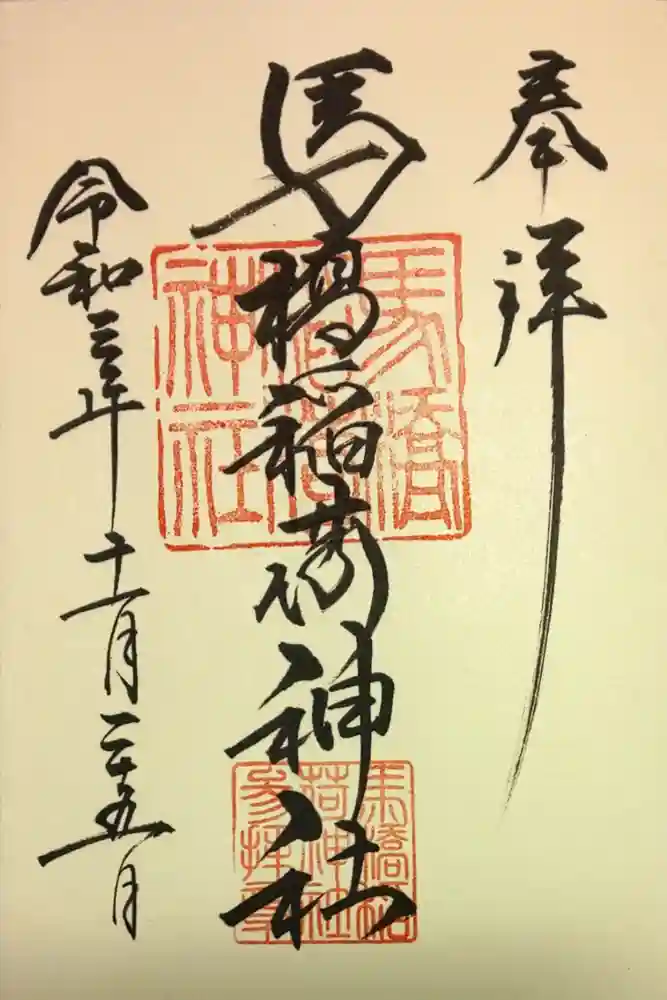 奉拝
馬橋稲荷神社
令和三年十一月二十五月
馬橋
稲荷
神社
馬橋稲
荷神社
参拝章